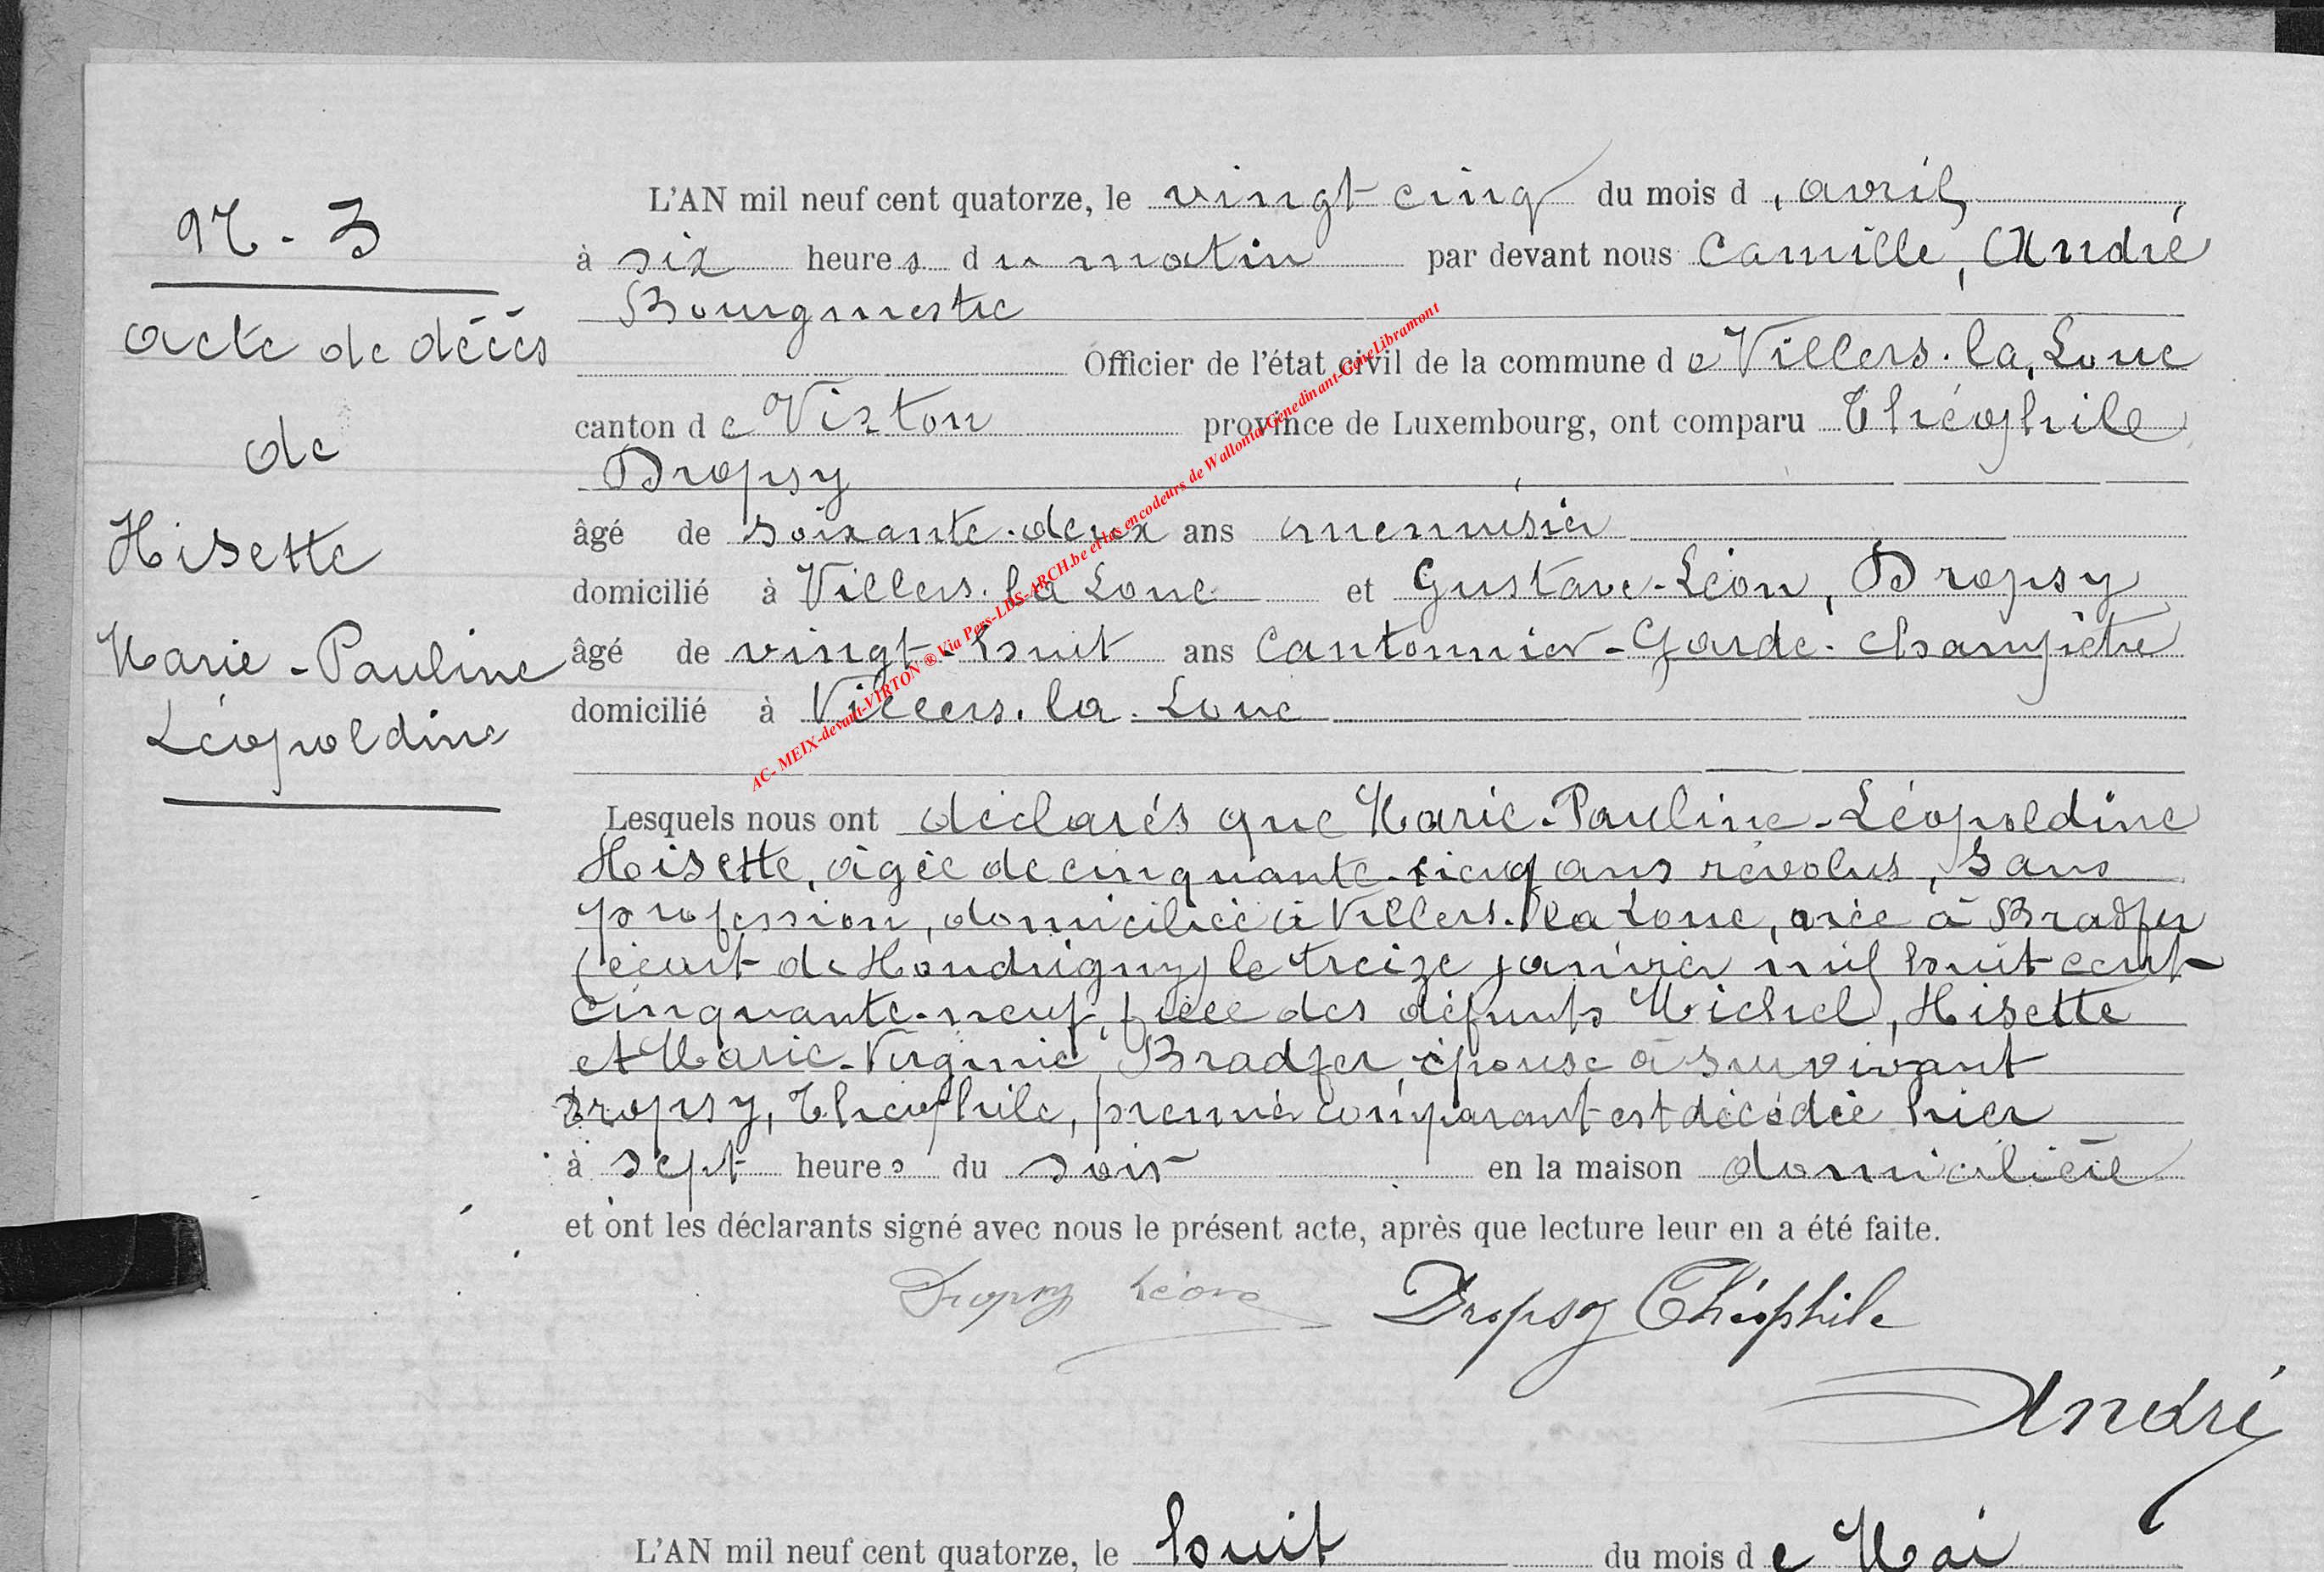 N. 3
acte de décès
de
Hisette
Marie - Pauline
Léopoldine
L'AN mil neuf cent quatorze, le vingt cinq du mois d'avril
à six heures du matin par devant nous Camille, André
Bourgmestre
Officier de l'état civil de la commune de Villers-la-Loue
canton de Virton province de Luxembourg, ont comparu Théophile
Dropsy
âgé de soixante-deux ans menuisier
domicilié à Villers-la Loue et Gustave-Léon, Dropsy
âgé de vingt-huit ans Cantonnier-Garde-champêtre
domicilié à Villers-la-Loue
Lesquels nous ont déclarés que Marie-Pauline-Léopoldine
Hisette, âgée de cinquante-cinq ans révolus, sans
profession, domiciliée à Villers-la Loue, née à Bradfer
(écart de Houdrigny) le treize janvier mil huit cent
cinquante-neuf, fille des défunts Michel, Hisette
et Marie-Virginie Bradfer, épouse à survivant
Dropsy, Théophile, premier comparant est décédée hier
à sept heures du soir en la maison domiciliée
et ont les déclarants signé avec nous le présent acte, après que lecture leur en a été faite.
Dropsy Léon Dropsy Théophile
André
L'AN mil neuf cent quatorze, le huit du mois de Mai
AC- MEIX-devant-VIRTON ® Via Pers-LDS-ARCH.be et les encodeurs de Wallonia-Genedinant-GeneLibramont